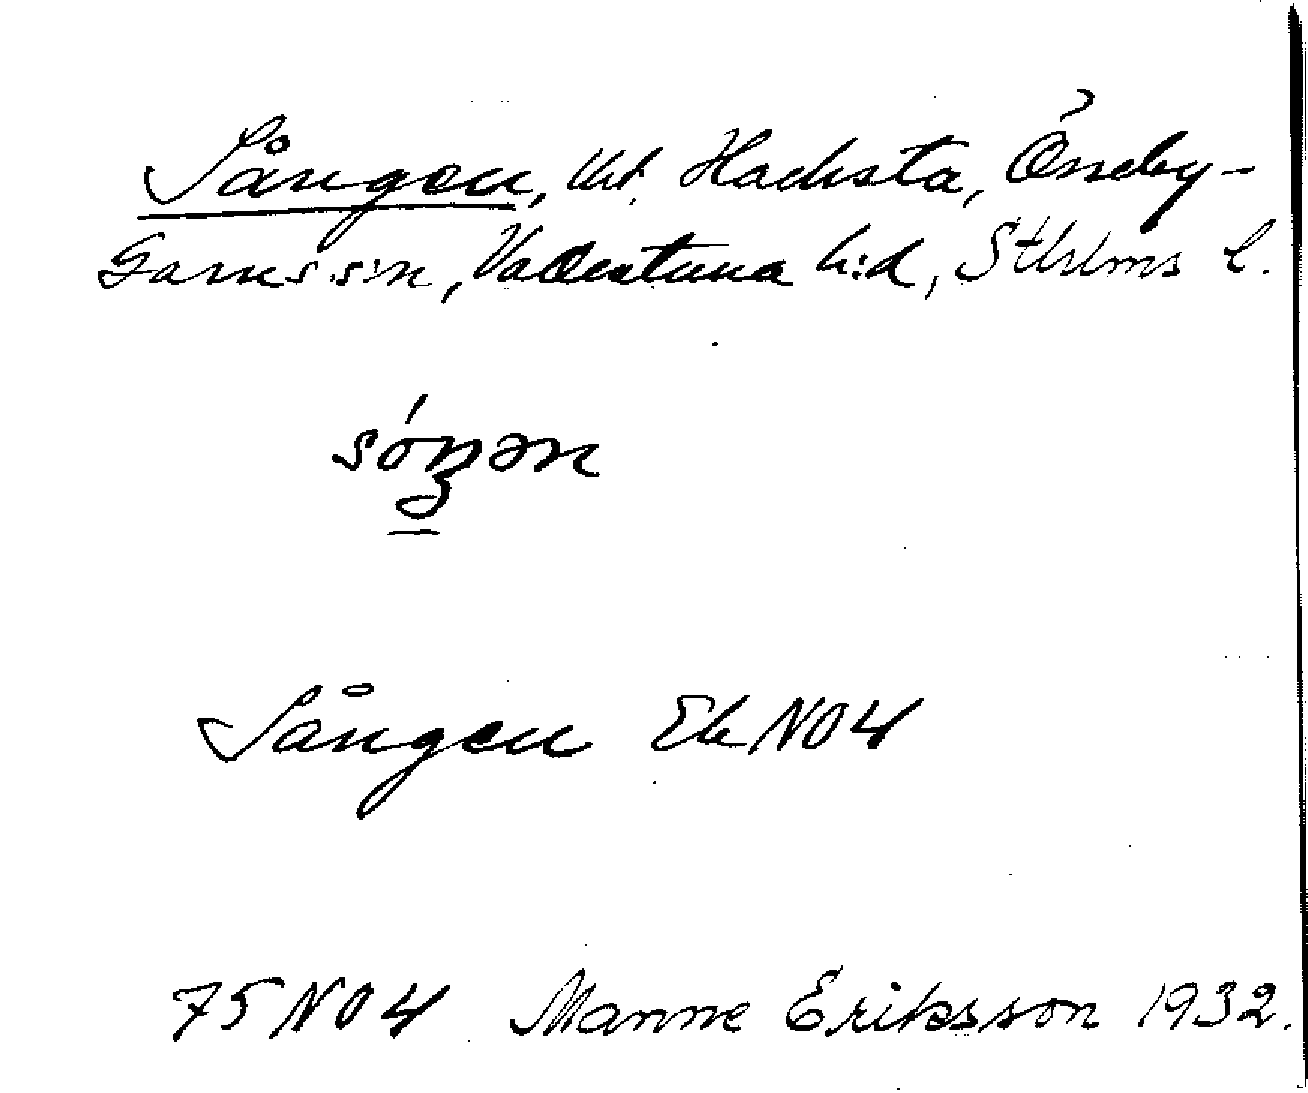 Sången, till Hacksta, Össeby-
Garns s:n, Vallentuna h:d, Sthlms l.
sóŋən
Sången Ek NO4
75 NO4 Manne Eriksson 1932.